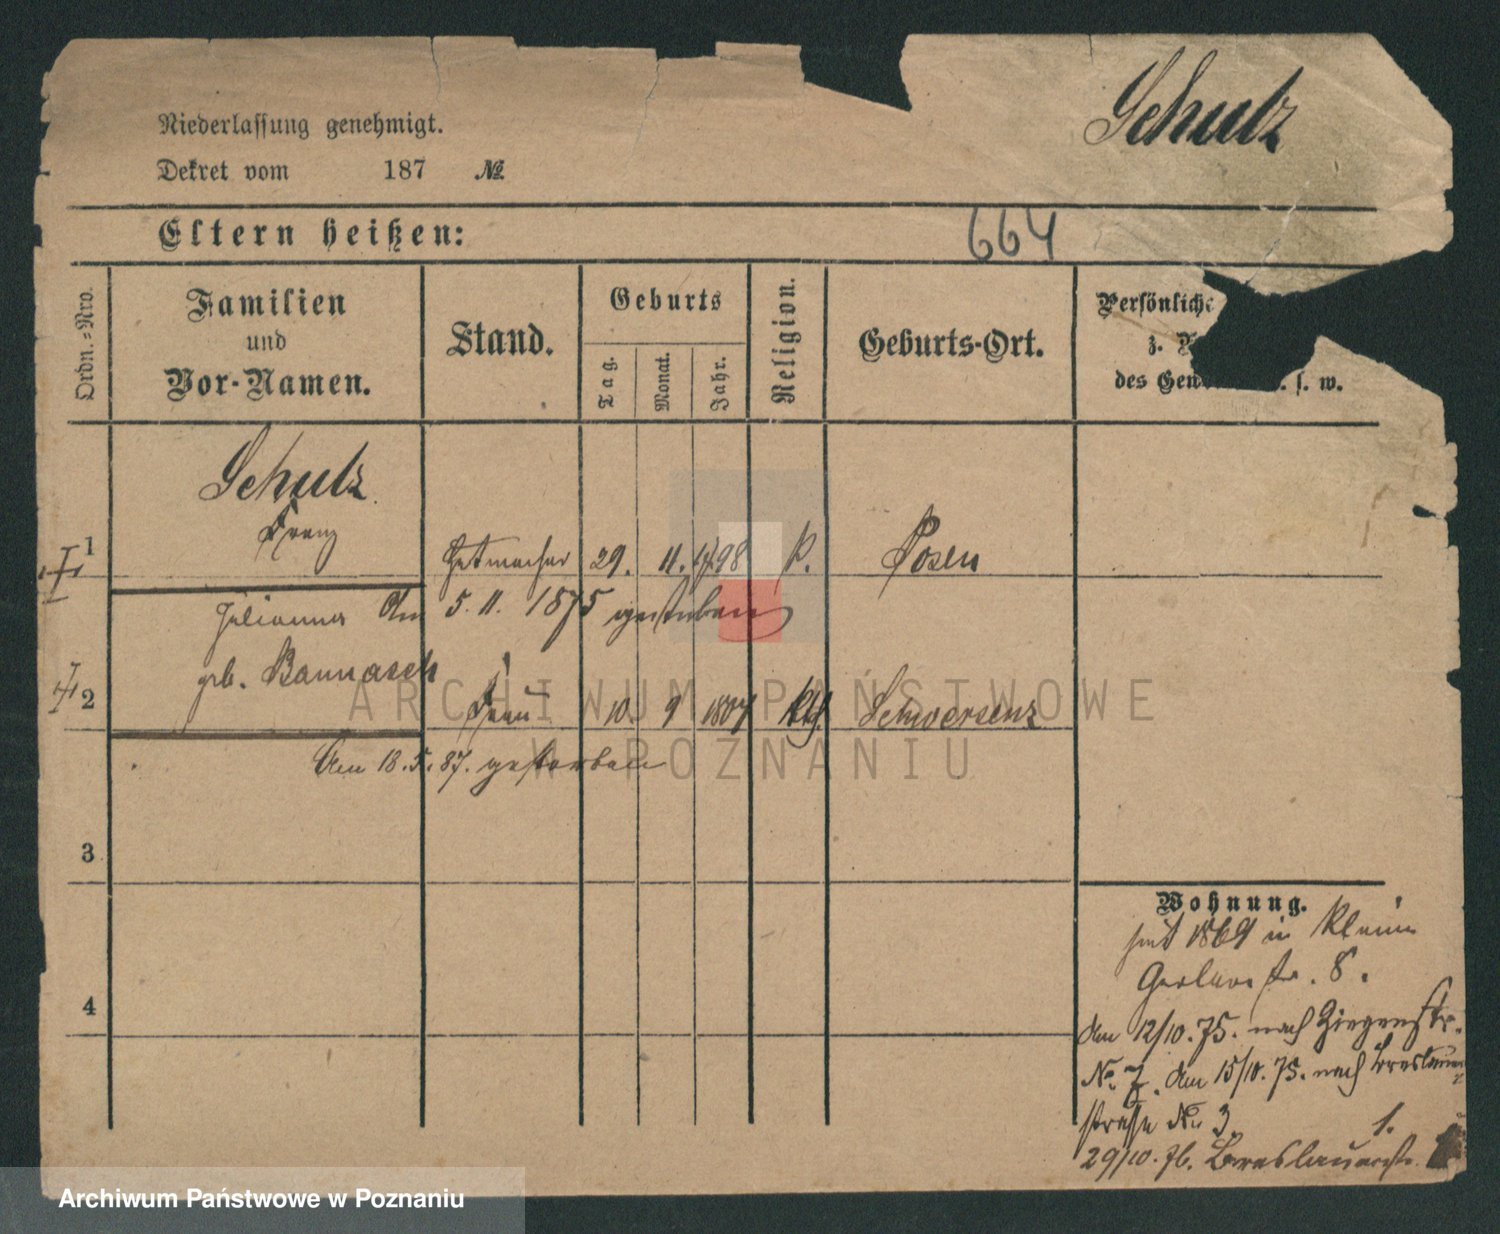 Schulz
Niederlassung genehmigt.
Dekret vom 187 №
Eltern heißen:
664
Ordn.-Nro.
Familien
und
Vor-Namen.
Stand.
Geburts
Tag.
Monat.
Jahr.
Religion.
Geburts-Ort.
Persönliche
z.
des Gen . s. w.
Schulz
Franz
1 Hutmacher 29. 11. 1798 k. Posen
Julianna Am 5. 11. 1875 gestorben
geb. Bannasch
2 Frau 10 9 1807 kth. Schwersenz
Am 18.5.87. gestorben
3
4
Wohnung.
seit 1869 in Kleine
Gerberstr. 8.
Am 12/10.75. nach Ziegenstr.
No. 7. Am 15/10.75. nach Breslauer
strasse No. 3.
1.
29/10.76. Breslauerstr.
ARCHIWUM PAŃSTWOWE
W POZNANIU
Archiwum Państwowe w Poznaniu